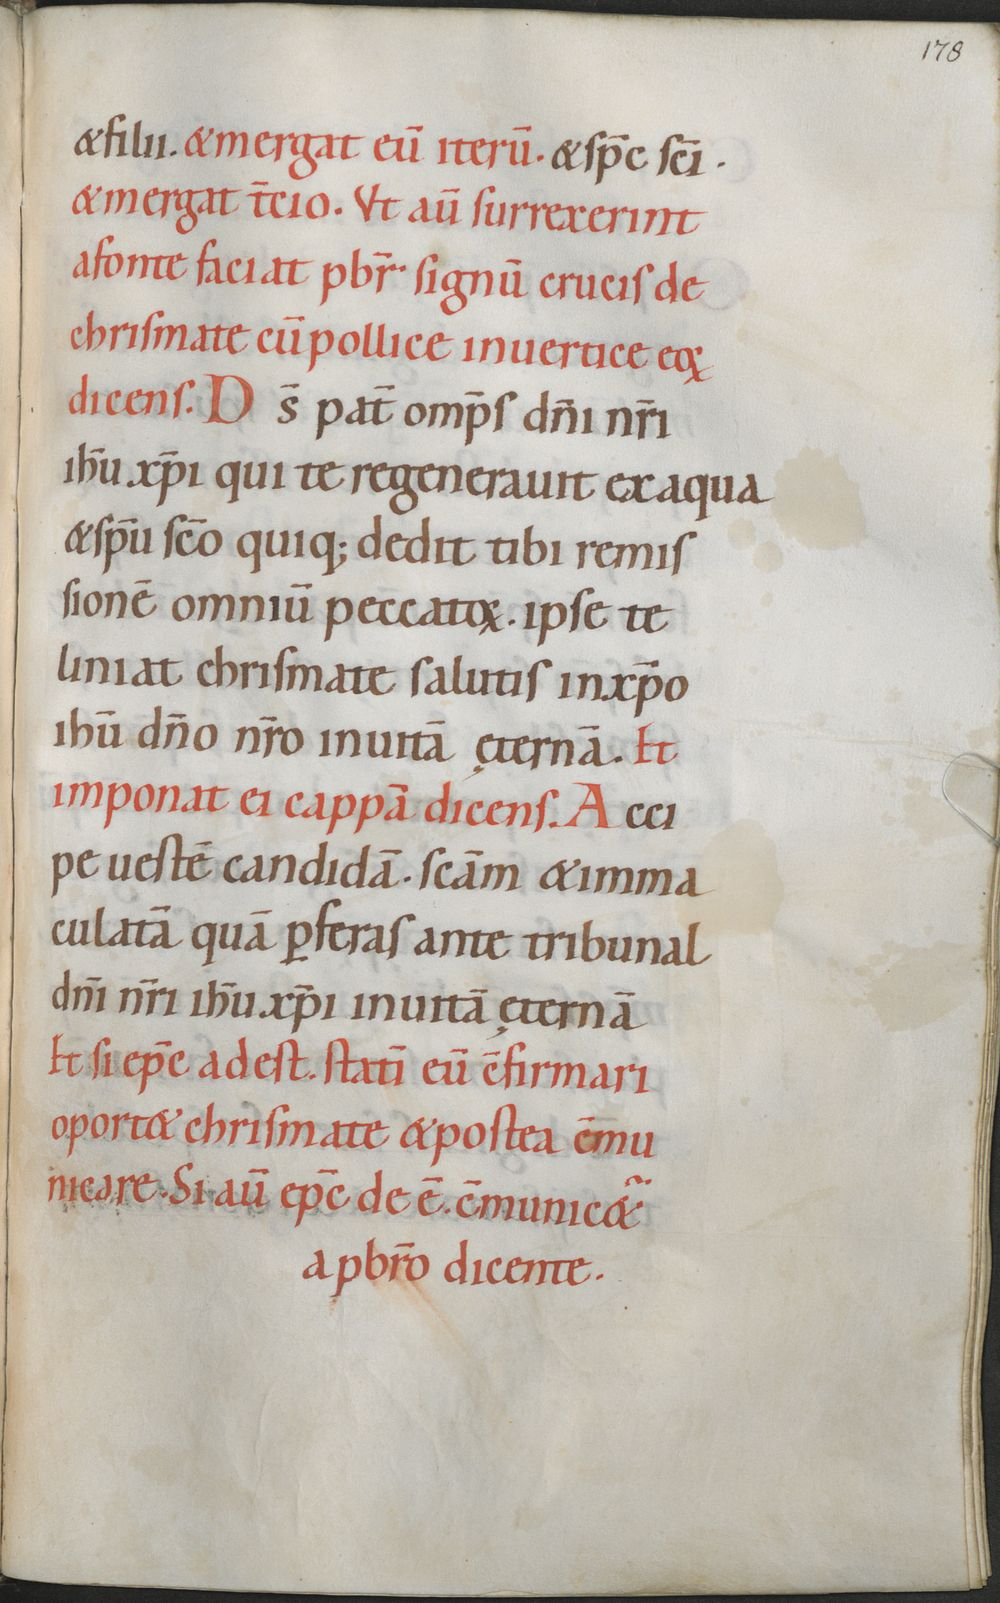 178
&filii. &mergat eū iterū. &sp̄c sc̄i.
&mergat t̄cio. Vt aū surrexerint
afonte faciat pbr̄ signū crucis de
chrismate cū pollice inuertice eoꝝ
dicens. D s̄ pat̄ omp̄s dn̄i nr̄i
ih̄u xp̄i qui te regenerauit exaqua
&sp̄u sc̄o quiq; dedit tibi remis
sionē omniū peccatoꝝ. ipse te
liniat chrismate salutis inxp̄o
ihū dn̄o nr̄o inuitā ęternā. Et
imponat ei cappā dicens. A cci
pe uestē candidā. scām &imma
culatā quā ꝑferas ante tribunal
dn̄i nr̄i ih̄u xp̄i inuitā ęternā
Et si ep̄c adest. statī eū c̄firmari
oport& chrismate &postea c̄mu
nicare. Si aū ep̄c de ē. c̄munic&̃
apbr̄o dicente.